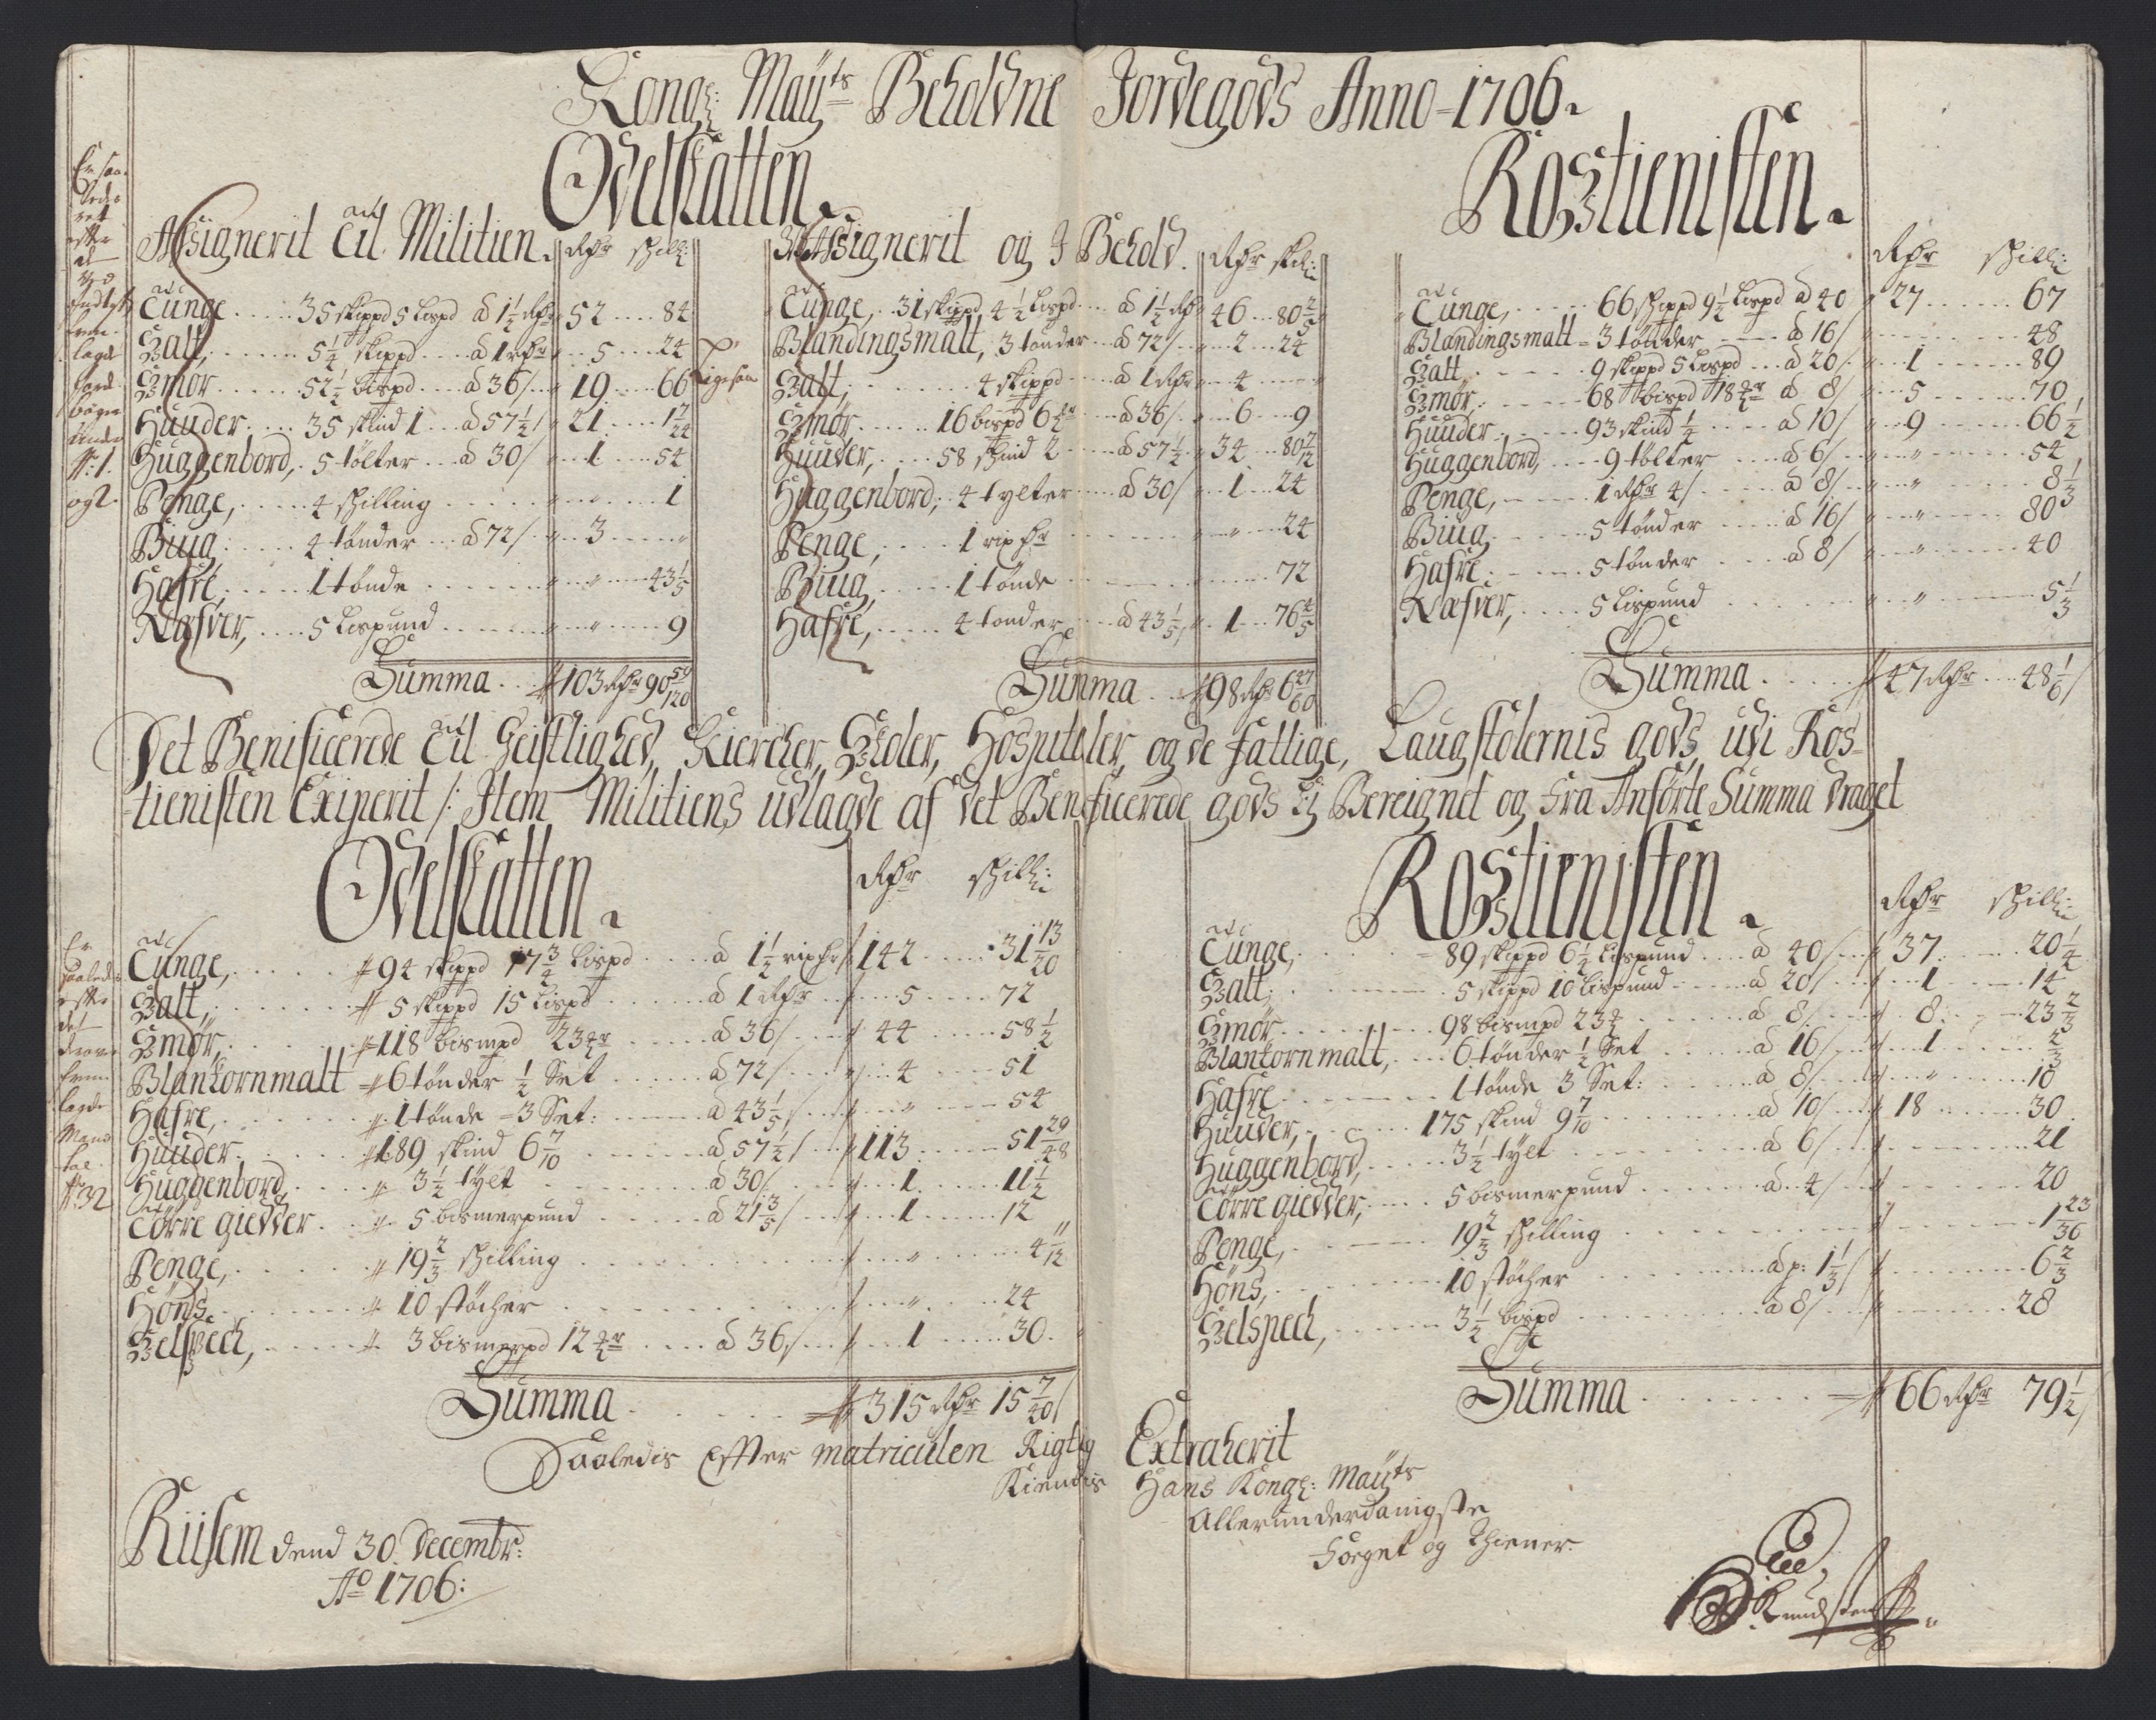 Kongl: Maÿts Beholdne Jordegods Anno=1706.
Odelskatten.
Assignerit til Militien. Rdr skill:
Tunge .... 35 skippd 5 Lispd a 1½ Rdr 52 .... 84
Salt, .... 5¼ skippd .... a 1 rdr .. 5 .... 24
Smør .... 52½ bispd .... a 36/ .. 19 .... 66
Huuder .... 35 skind 1 .. a 57½/ 21 .... 1 7/24
Huggenbord, . 5 tølter ... a 30/ .. 1 .... 54
Penge, .... 4 skilling .... " .... 1
Biug .... 4 tønder .. a 72/ .. 3 .... "
Hafre, .... 1 tønde .... " .... 43 1/5
Næfver, ... 5 Lispund .... " .... 9
Summa .. 103 Rdr 90 59/120
U Assignerit og J Behold. Rdr skil:
Tunge, .. 31 skippd 4½ Lispd ... a 1½ Rdr 46 ... 80 2/5
Blandingsmalt, 3 tønder .. a 72/ .. 2 .. 24
Salt, .... 4 skippd .... a 1 Rdr .. 4 .... "
Smør .... 16 bispd 6 mr .. a 36/ .. 6 ... 9
Huuder, ... 58 skind 2 ... a 57½ .. 34 ... 80 7/12
Huggenbord, . 4 tylter .... a 30/ .. 1 ... 24
Penge, .... 1 rixdr .... " .... 24
Biug, .... 1 tønde .... 72
Hafre, .... 4 tønder .... a 43 1/5, .. 1 ... 76 4/5
Summa .. 98 Rdr 6 47/60
Rosstienisten.
Rdr skill:
Tunge, .... 66 skippd 9½ Lispd a 40 27 .... 67
Blandingsmalt = 3 tønder ... a 16/ .... 48
Salt .... 9 skippd 5 Lispd ... a 20/ .. 1 .... 89
Smør, .... 68 bispd 18 mr a 8/ .. 5 .... 70
Huuder .... 93 skind ¼ .... a 10/ .. 9 .... 66½
Huggenbord, .... 9 tølter .... a 6/ .. " .... 54
Penge, .... 1 Rdr 4/ .... a 8/ .. " .... 8 1/3
Biug .... 5 tønder .... a 16/ .. " .... 80
Hafre .... 5 tønder .... a 8/ .. " .... 40
Næfver, .... 5 Lispund .... " .... 5 1/3
Summa .... 47 Rdr ... 48 1/6/
Det Benificerede til Geistlighed, Kiercher, Skoler, Hospitaler, og de fattige, Laugstolernis gods, udi Ros-
tienisten Exiperit /: Item Militiens udlagde af det Beneficerede gods ej Bereignet og Fra Anførte Summa draget
Odelskatten.
Rdr skill:
Tunge, .... 94 skippd 17¾ Lispd .... a 1½ rixdr 142 .... 31 13/20
Salt, .... 5 skippd 15 Lispd .... a 1 Rdr .... 5 .... 72
Smør, .... 118 bismpd 23 mr .... a 36/ .... 44 .... 58½
Blankornmalt 6 tønder ½ Set .... a 72/ .... 4 .... 51
Hafre, .... 1 tønde = 3 Set: .... a 43 1/5/ .... " .... 54
Huuder .... 189 skind 6 7/10 .... a 57½/ .. 113 .... 51 29/48
Huggenbord .... 3½ tylt .... a 30/ .... 1 .... 11½
Tørre giedder .. 5 bismerpund .... a 21 3/5/ .... 1 .... 12
Penge, .... 19 2/3 skilling .... " .... 4 11/12
Høns .... 10 støcher .... " .... 24
Selspech, .... 3 bismerpd 12 mr .... a 36/ .... 1 .... 30.
Summa .... 315 Rdr 15 7/40/
Rosstienisten.
Rdr skill:
Tunge, .... 89 skippd 6½ Lispund .... a 40/ .. 37 .... 20¼
Salt, .... 5 skippd 10 Lispund .... a 20/ .. 1 .... 14
Smør .... 98 bismpd 23 mr .... a 8/ .... 8 .... 23 2/3
Blankornmalt, .... 6 tønder ½ Set .... a 16/ .. 1 .... 2/3
Hafre .... 1 tønde 3 Set: .... a 8/ .. " .... 10
Huuder, .... 175 skind 9 7/10 .... a 10/ .. 18 .... 30
Huggenbord, .... 3½ tylt .... a 6/ .... 21
Tørre giedder, .... 5 bismerpund .... a 4/ .... 20
Penge, .... 19 2/3 skilling .... 1 23/36
Høns, .... 10 støcher .... a p: 1 1/3/ .... 6 2/3
Selspech, .... 3½ bispd .... a 8/ .... 28
Summa .... 66 Rdr 79½/
Saaledis Effter matriculen Rigtig Extraherit
Kiendis
Hans Kongl: Maÿts
Allerunderdanigste
Foeget og Thiener
Riisem dend 30. Decembr:
Ao 1706:
Knudsen